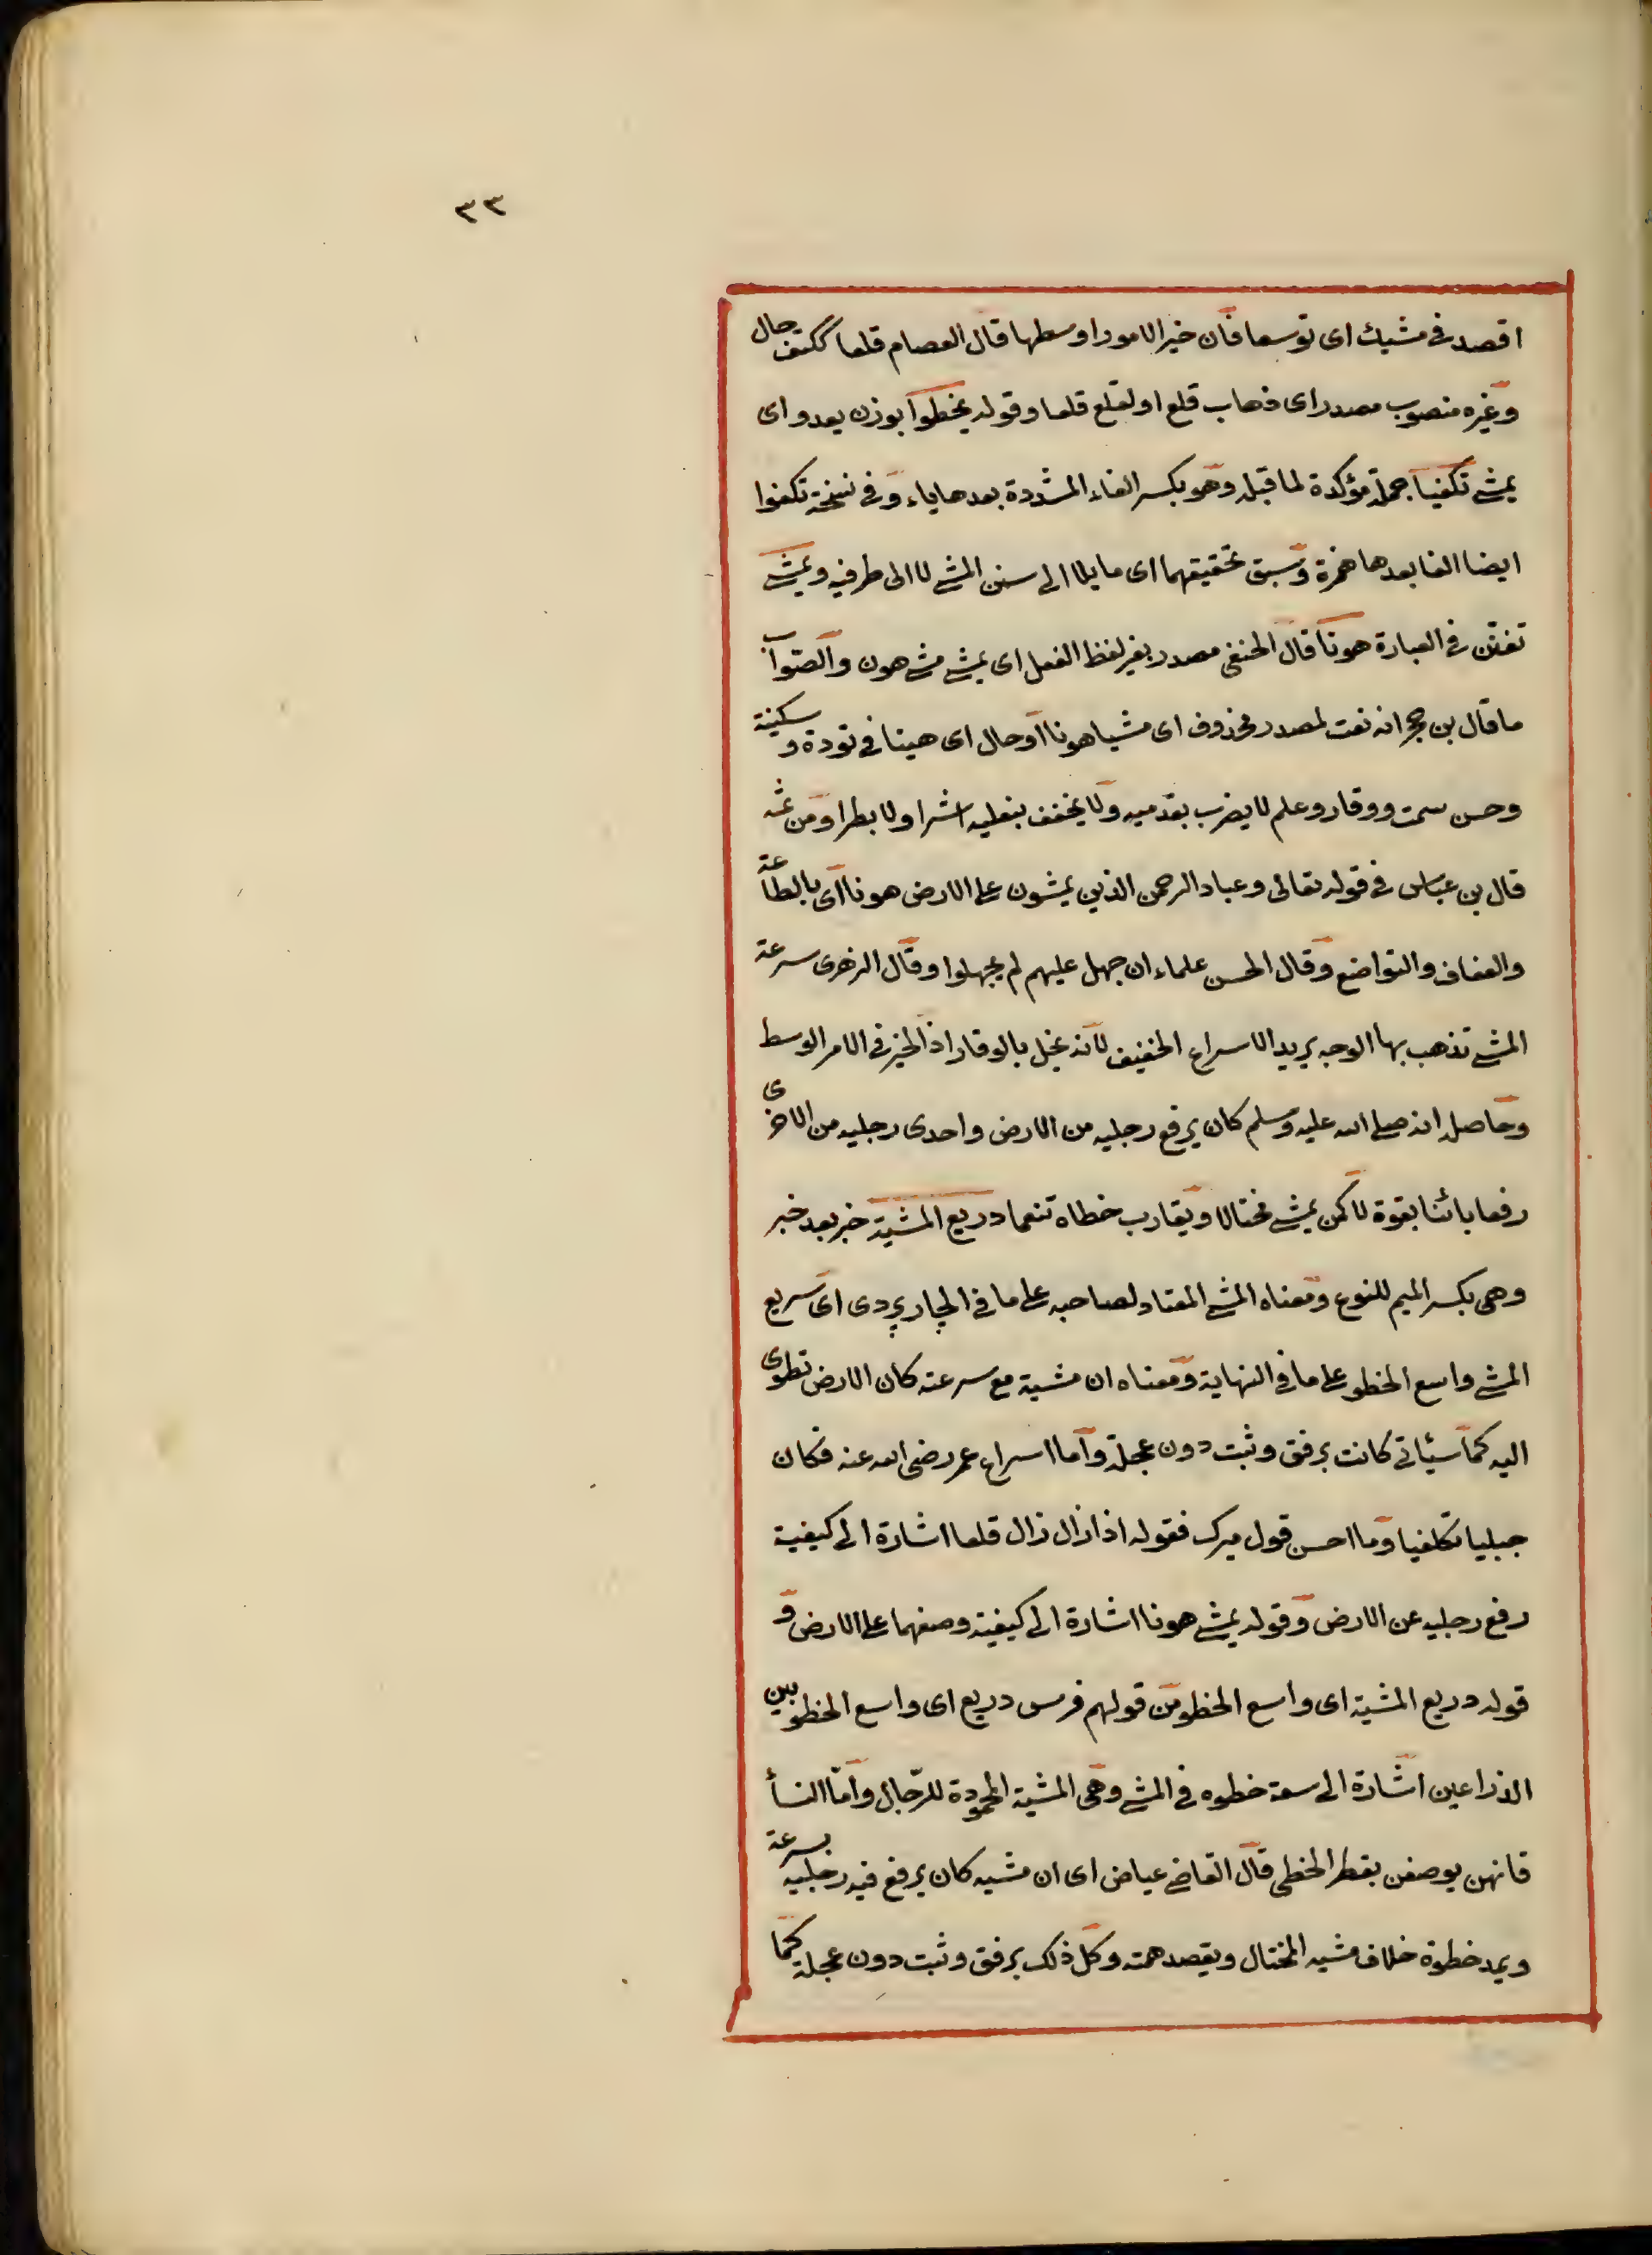 ٣٣
اقصد فى مشيك اى توسعا فان خير الامور اوسطها قال العصام قلعا ككتف حال
وغيره منصوب مصدر اى ذهاب قلع او لقلع قلعا وقوله يخطوا بوزن يعدو اى
يمشى تكفيا جملة مؤكدة لما قبله وهو بكسر الفاء المشددة بعدها ياء وفى نسخة تكفوا
ايضا الفا بعدها همزة وسبق تحقيقهما اى مايلا الى سنن المشى لا الى طرفيه ويمشى
تفنن فى العبارة هونا قال الحنفى مصدر بغير لفظ الفعل اى يمشى مشى هون والصواب
ما قال بن حجر انه نعت لمصدر محذوف اى مشيا هونا او حال اى هينا فى تودة وسكينة
وحسن سمت ووقار وعلم لا يضرب بقدميه ولا يخفف بنعليه اشرا ولا بطرا ومن ثمه
قال بن عباس فى قوله تعالى وعباد الرحمن الذين يمشون على الارض هونا اى بالطاعة
والعفاف والتواضع وقال الحسن علماء ان جهل عليهم لم يجهلوا وقال الزهرى سرعة
المشى تذهب بها الوجه يريد الاسراع الخفيف لانه يخل بالوقار اذ الخير فى الامر الوسط
وحاصله انه صلى الله عليه وسلم كان يرفع رجليه من الارض واحدى رجليه من الاخرى
رفعا بائنا بقوة لا كمن يمشى مختالا ويقارب خطاه تنعما دريع المشية خبر بعد خبر
وهى بكسر الميم للنوع ومعناه المشى المعتاد لصاحبه على ما فى الجاربردى اى سريع
المشى واسع الخطو على ما فى النهاية ومعناه ان مشية مع سرعته كان الارض تطوى
اليه كما سيئاتى كانت برفق وثبت دون عجلة واما اسراع عمر رضى الله عنه فكان
جبليا تكلفيا وما احسن قول ميرك فقوله اذا زال زال قلعا اشارة الى كيفية
رفع رجليه عن الارض وقوله يمشى هونا اشارة الى كيفية وصفهما على الارض و
قوله دريع المشية اى واسع الخطو من قولهم فرس دريع اى واسع الخطو بين
الذراعين اشارة الى سعة خطوه فى المشى وهى المشية المحمودة للرجال واما النسأ
فانهن يوصفن بقطر الخطى قال القاضى عياض اى ان مشيه كان يرفع فيه رجليه بسرعة
ويمد خطوة خلاف مشيه المختال ويقصد همته وكل ذلك برفق وثبت دون عجلة كما